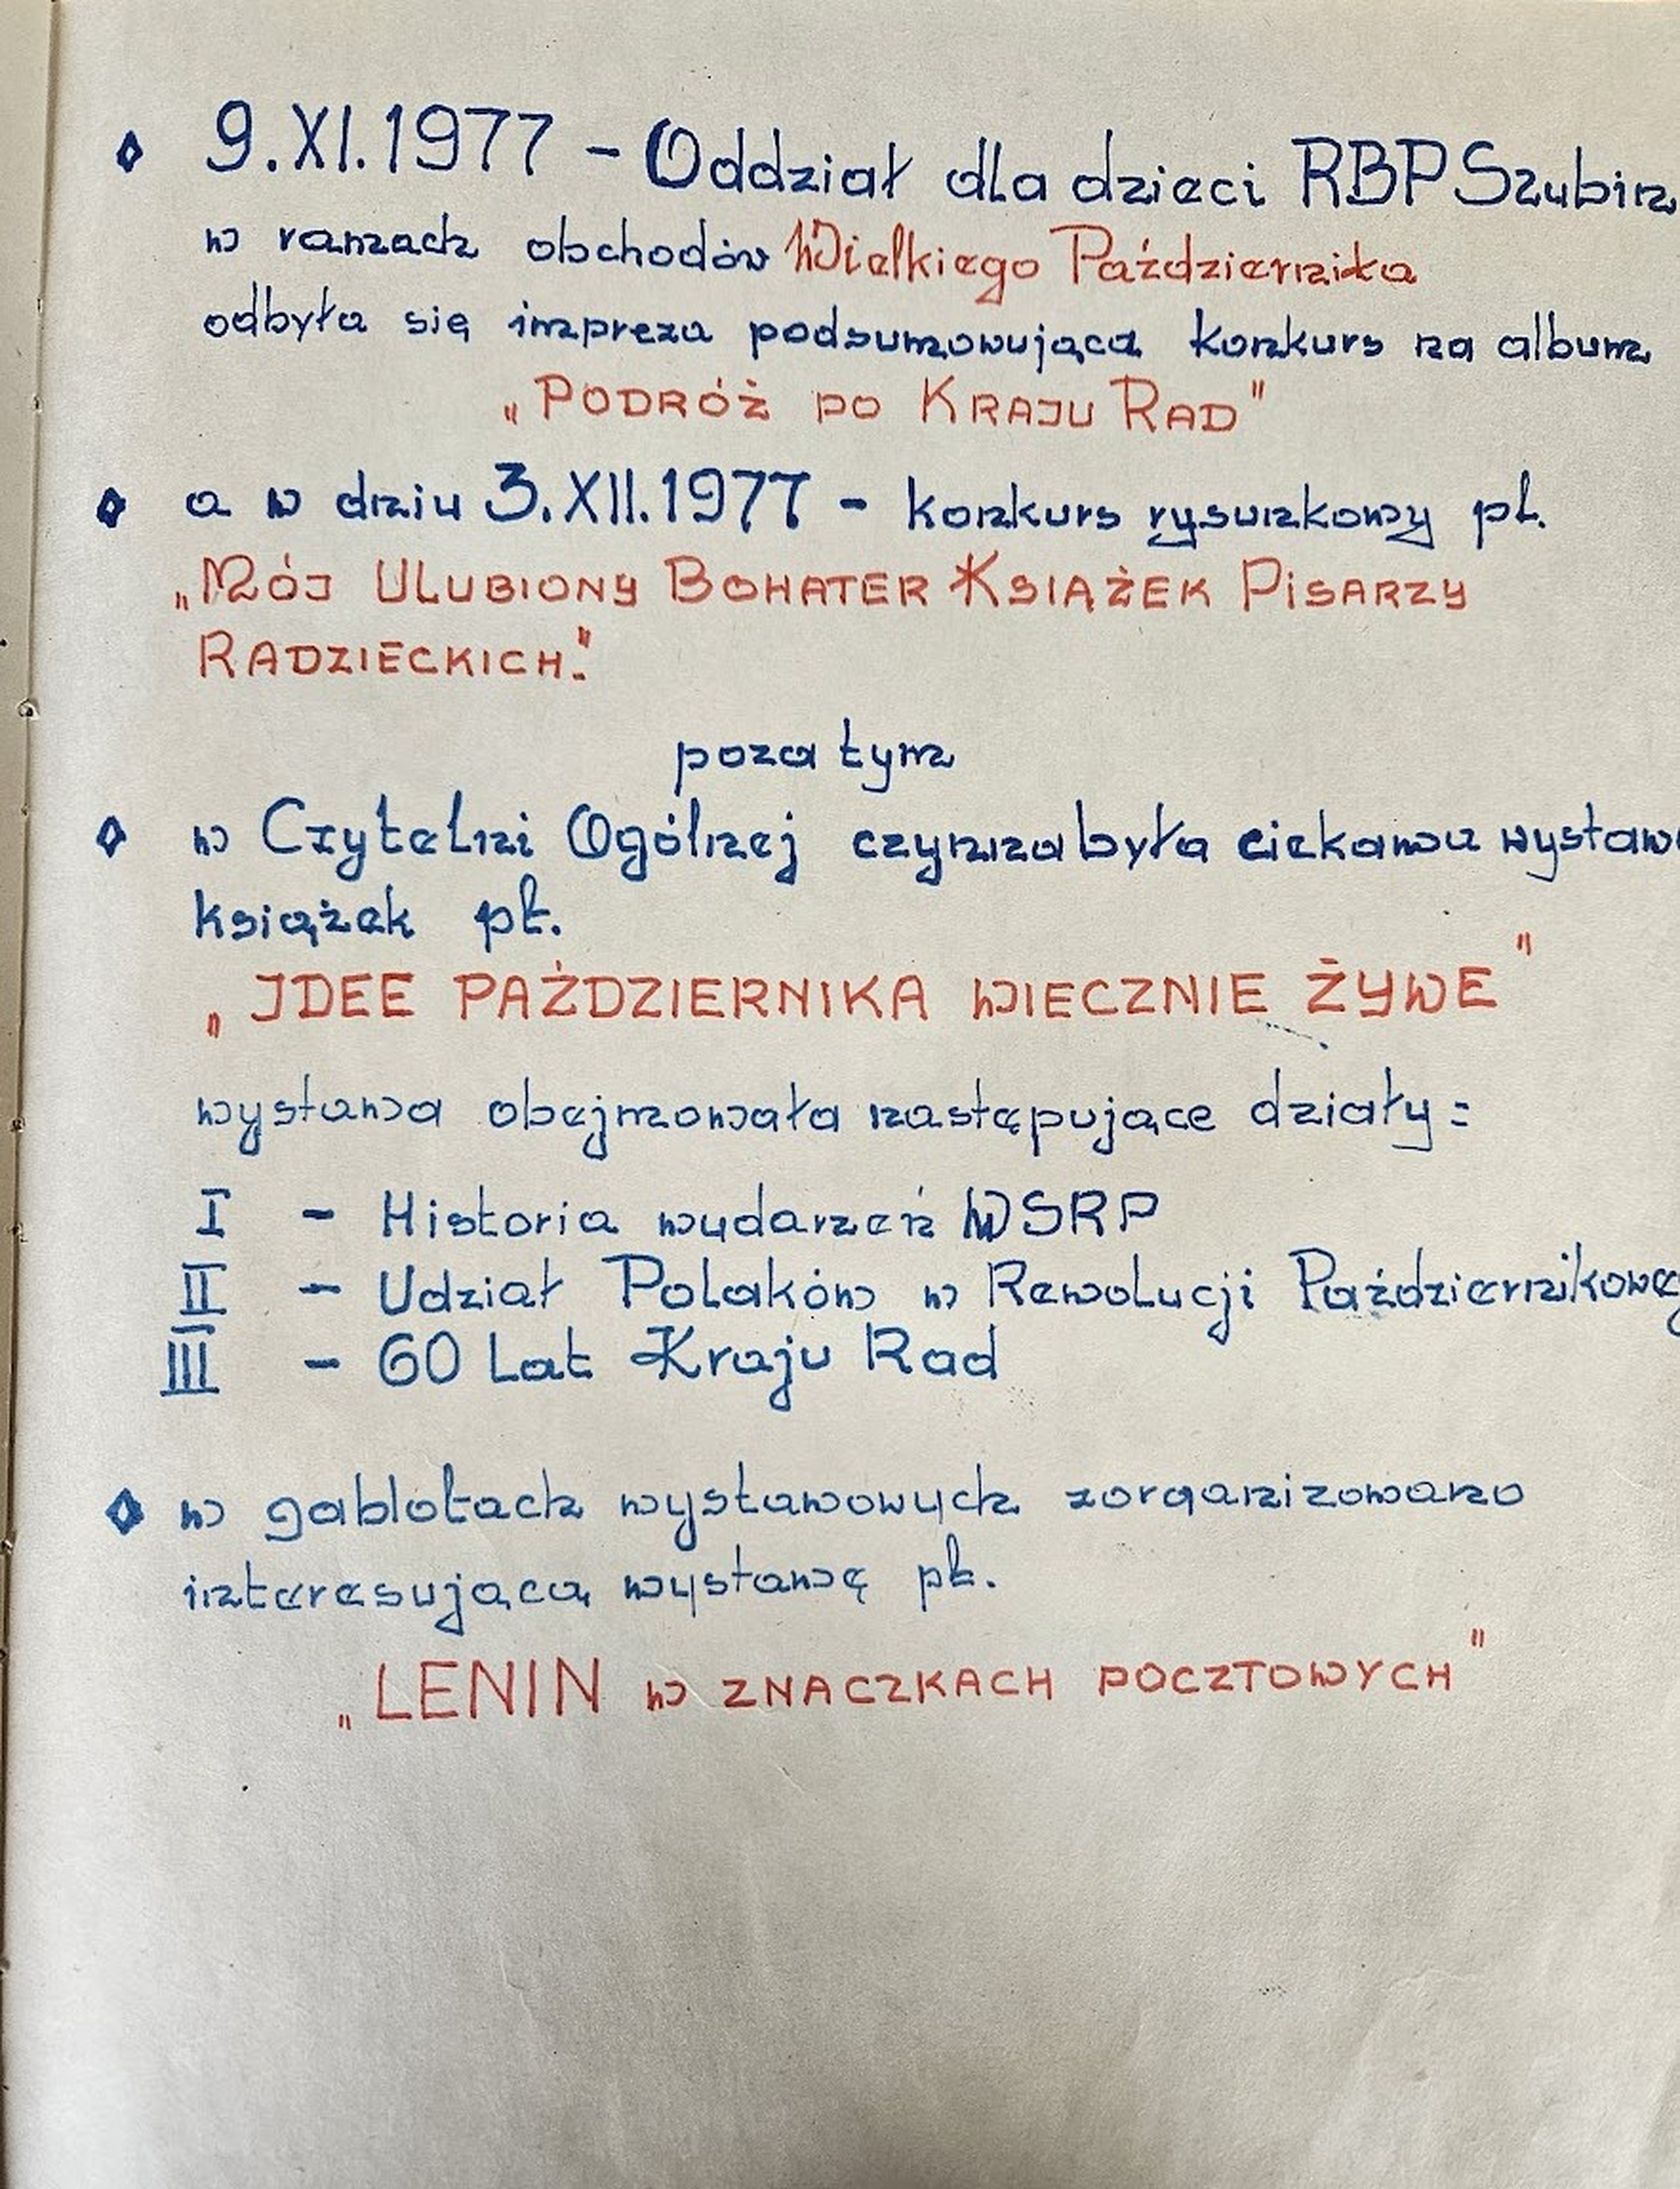 9.XI.1977 - Oddział dla dzieci RBP Szubin
w ramach obchodów Wielkiego Października
odbyła się impreza podsumowująca konkurs na album
„PODRÓŻ PO KRAJU RAD"
a w dniu 3.XII.1977 - konkurs rysunkowy pt.
„MÓJ ULUBIONY BOHATER KSIĄŻEK PISARZY
RADZIECKICH."
poza tym
w Czytelni Ogólnej czynna była ciekawa wystawa
książek pt.
„IDEE PAŹDZIERNIKA WIECZNIE ŻYWE"
wystawa obejmowała następujące działy:
I - Historia wydarzeń WSRP
II - Udział Polaków w Rewolucji Październikowej
III - 60 Lat Kraju Rad
w gablotach wystawowych zorganizowano
interesującą wystawę pt.
„LENIN W ZNACZKACH POCZTOWYCH"